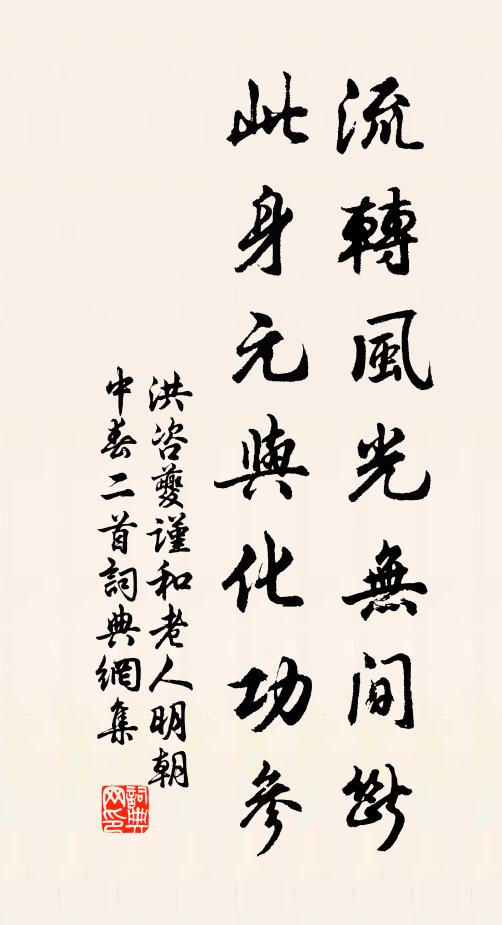 流轉風光無間斷
此身元與化功參
洪咨夔謹和老人明朝
中春二首詞典網集
詞典網印